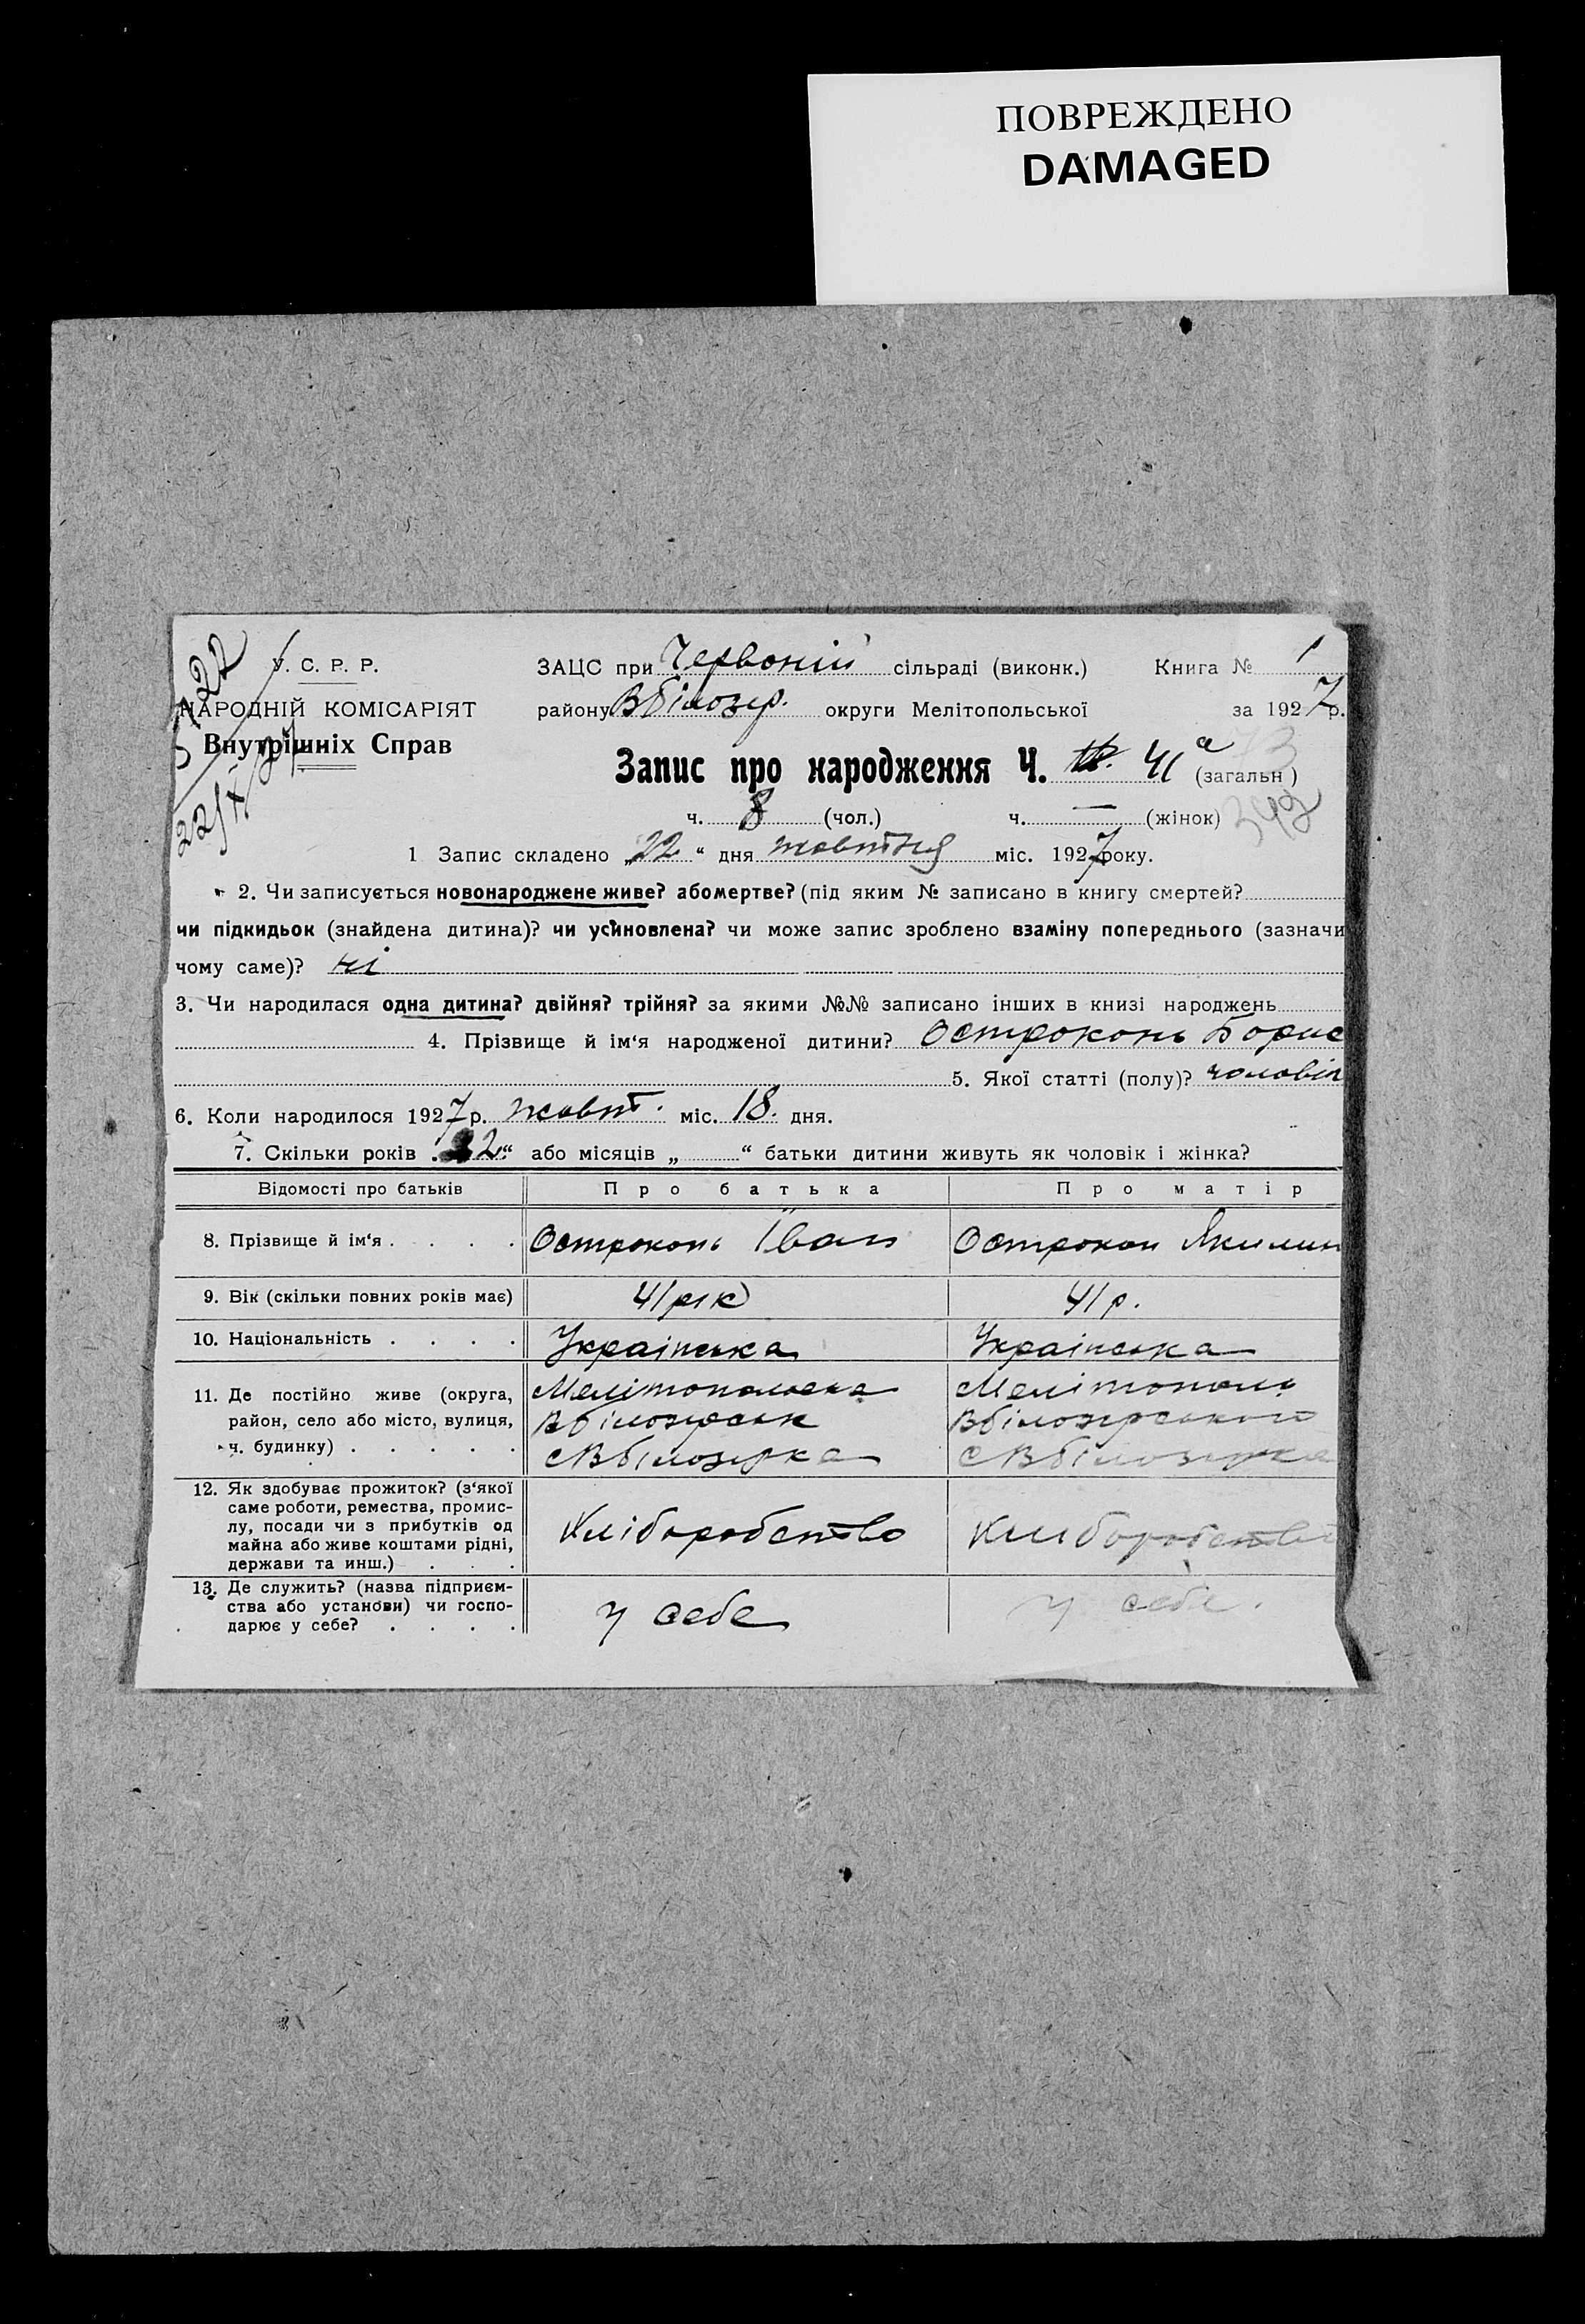 ПОВРЕЖДЕНО
DAMAGED
У. С. Р. Р.
НАРОДНІЙ КОМІСАРІЯТ
Внутрішніх Справ
ЗАЦС при Червоній сільраді (виконк.) Книга № 1
району Вбілозер. округи Мелітопольської за 1927 р.
Запис про народження Ч. 41 а (загальн)
ч. 8 (чол.) ч. — (жінок) 342
1 Запис складено „22“ дня жовтня міс. 1927 року.
2. Чи записується новонароджене живе? або мертве? (під яким № записано в книгу смертей?
чи підкидьок (знайдена дитина)? чи усиновлена? чи може запис зроблено взаміну попереднього (зазначи
чому саме)? ні
3. Чи народилася одна дитина? двійня? трійня? за якими №№ записано інших в книзі народжень
4. Прізвище й ім‘я народженої дитини? Остроконь Борис
5. Якої статті (полу)? чоловіч
6. Коли народилося 1927 р. жовт. міс. 18. дня.
7. Скільки років „22“ або місяців „ “ батьки дитини живуть як чоловік і жінка?
Відомості про батьків Про батька Про матір
8. Прізвище й ім‘я . . . . Остроконь Іван Острокон Якилин
9. Вік (скільки повних років має) 41 рік 41 р.
10. Національність . . . . Українська Українська
11. Де постійно живе (округа, Мелітопольска Мелітополь
район, село або місто, вулиця, Вбілозерськ Вбілозерського
ч. будинку) . . . . . с Вбілозерка с Вбілозерка
12. Як здобуває прожиток? (з‘якої
саме роботи, ремества, промис-
лу, посади чи з прибутків од Хліборобство Хліборобство
майна або живе коштами рідні,
держави та инш.) . . .
13. Де служить? (назва підприєм-
ства або установи) чи госпо- у себе у себе.
дарює у себе? . . . .